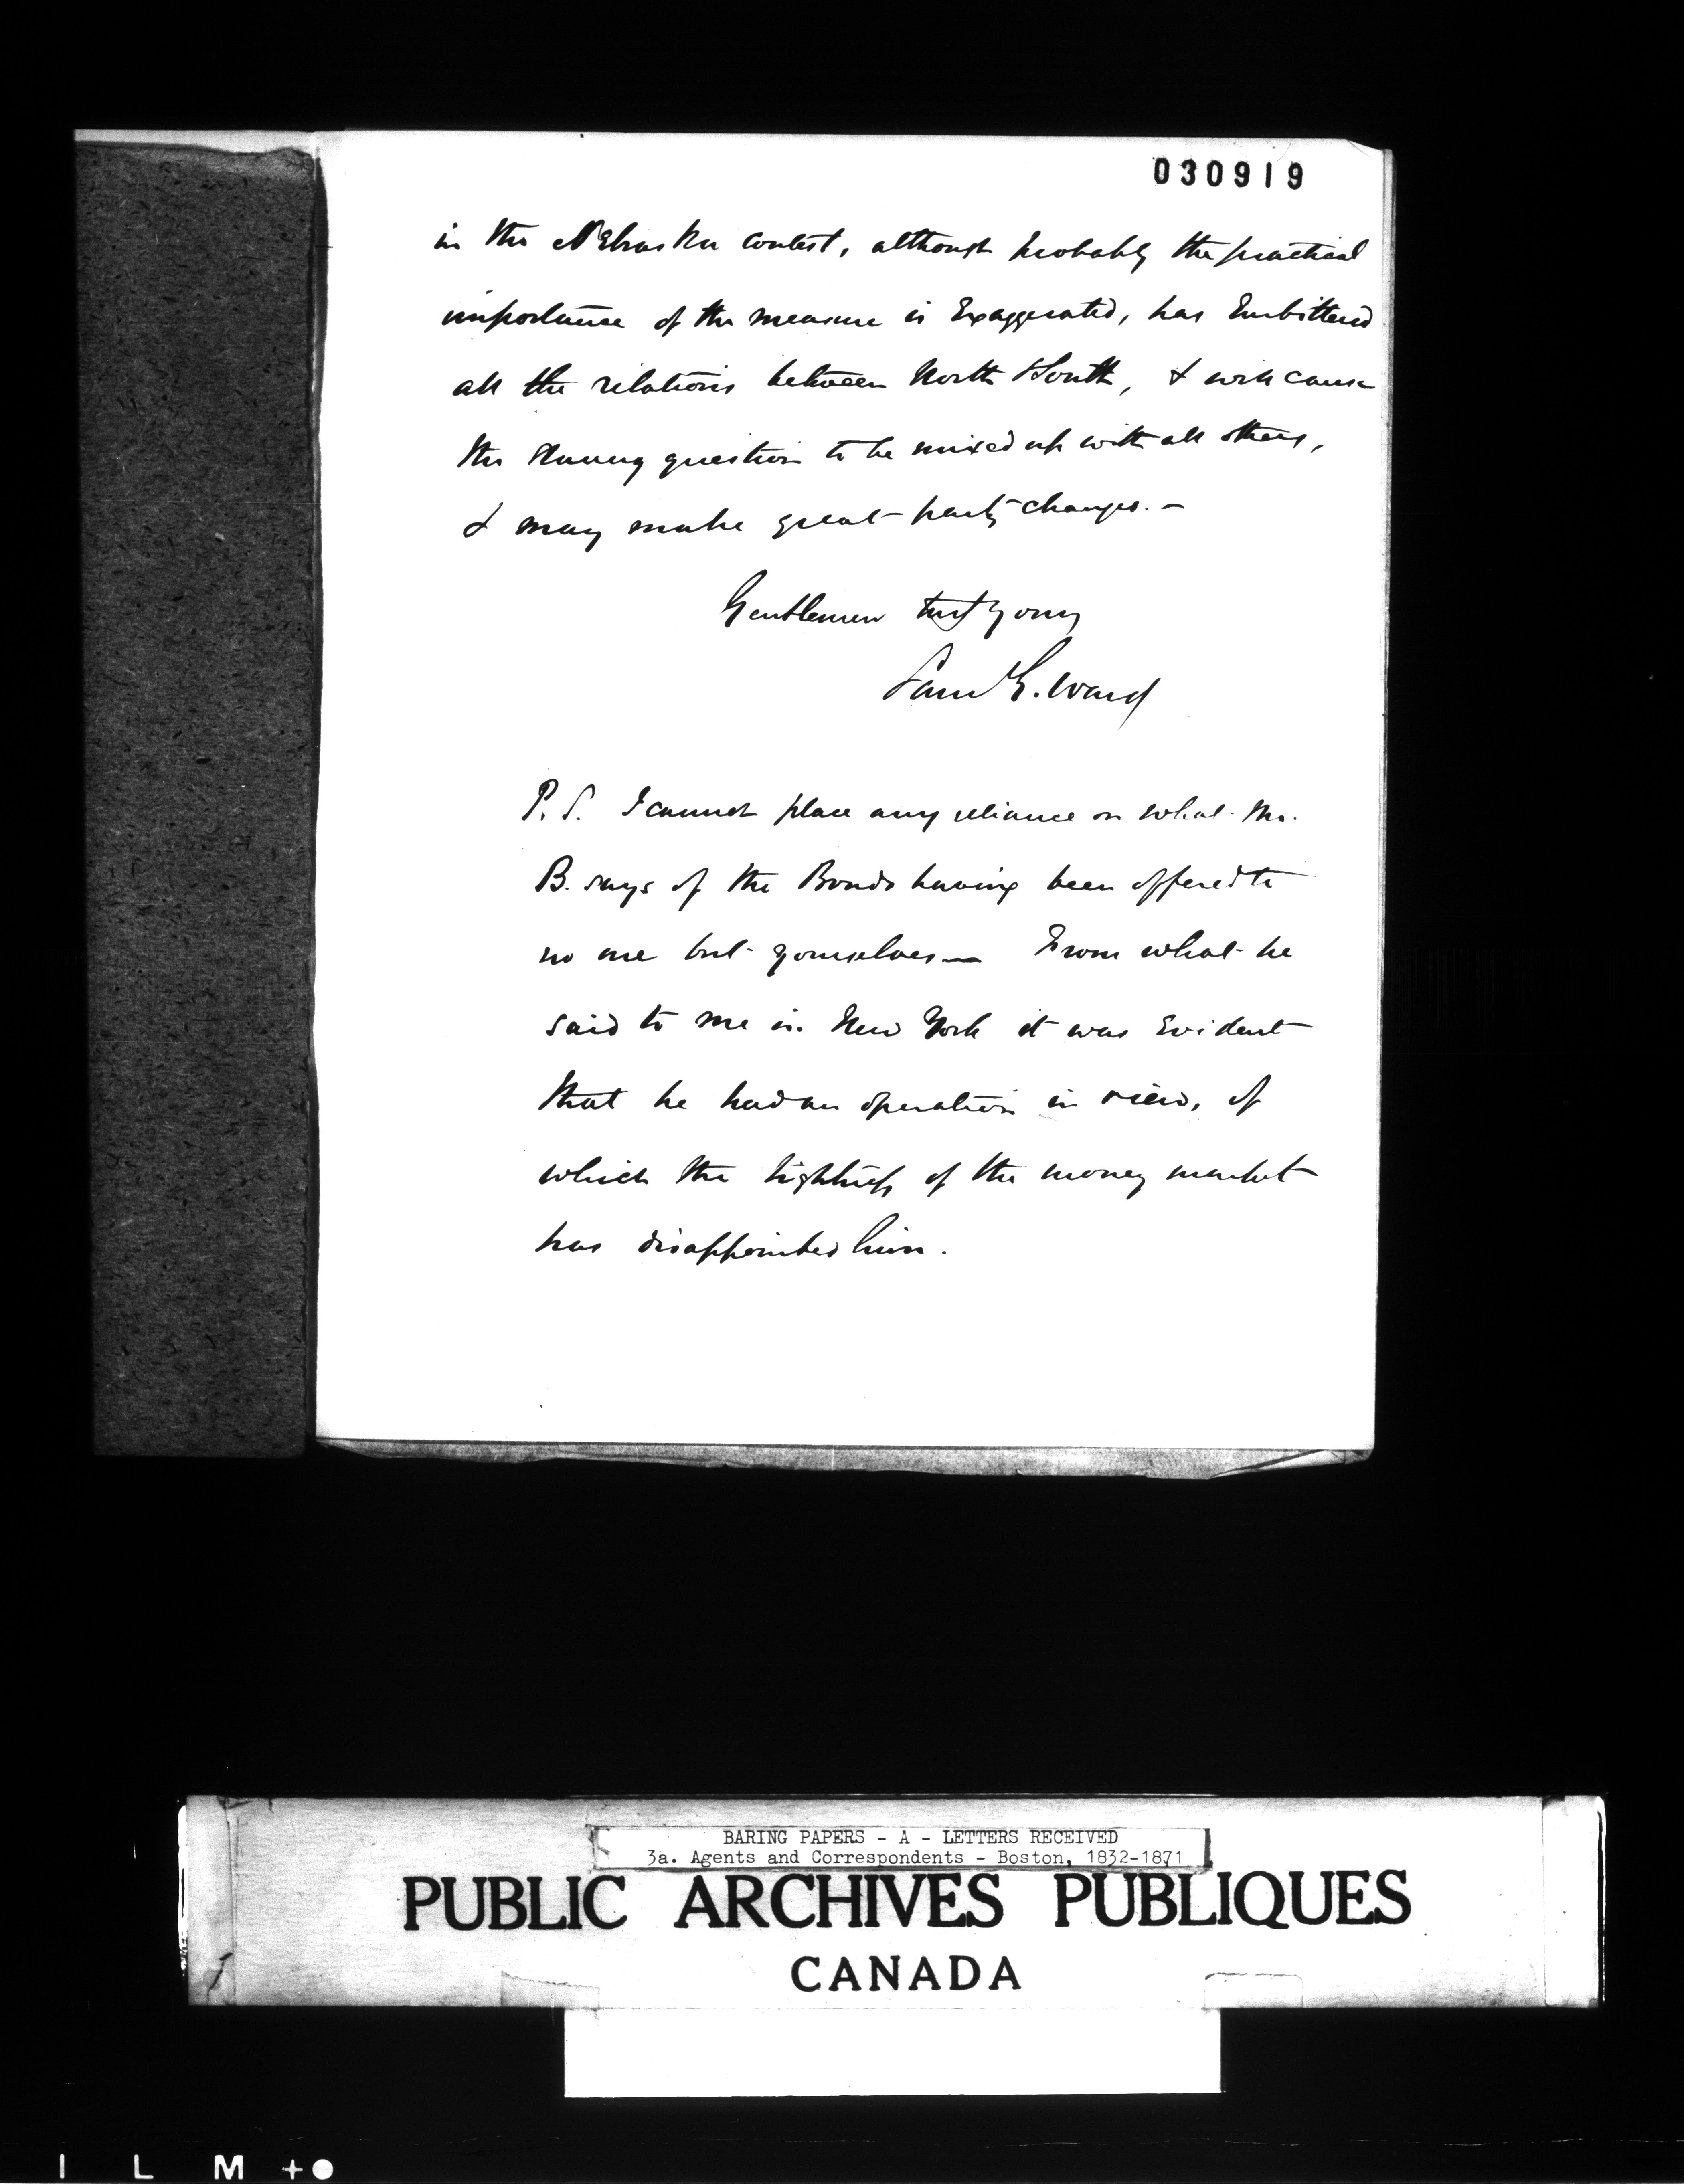 030919
in the Nebraska contest, although probably the practical
importance of the measure is Exaggerated, has Embittered
all the relations between North & South, & will cause
the slavery question to be mixed up with all others,
& may make great party changes. —
Gentlemen yours
Sam G. Ward
P. S. I cannot place any reliance on what Mr.
B. says of the Bonds having been offered to
no one but yourselves — From what he
said to me in New York it was Evident
that he had an operation in view, of
which the tightness of the money market
has disappointed him.
BARING PAPERS - A - LETTERS RECEIVED
3a. Agents and Correspondents - Boston, 1832-1871
PUBLIC ARCHIVES PUBLIQUES
CANADA
I L M +